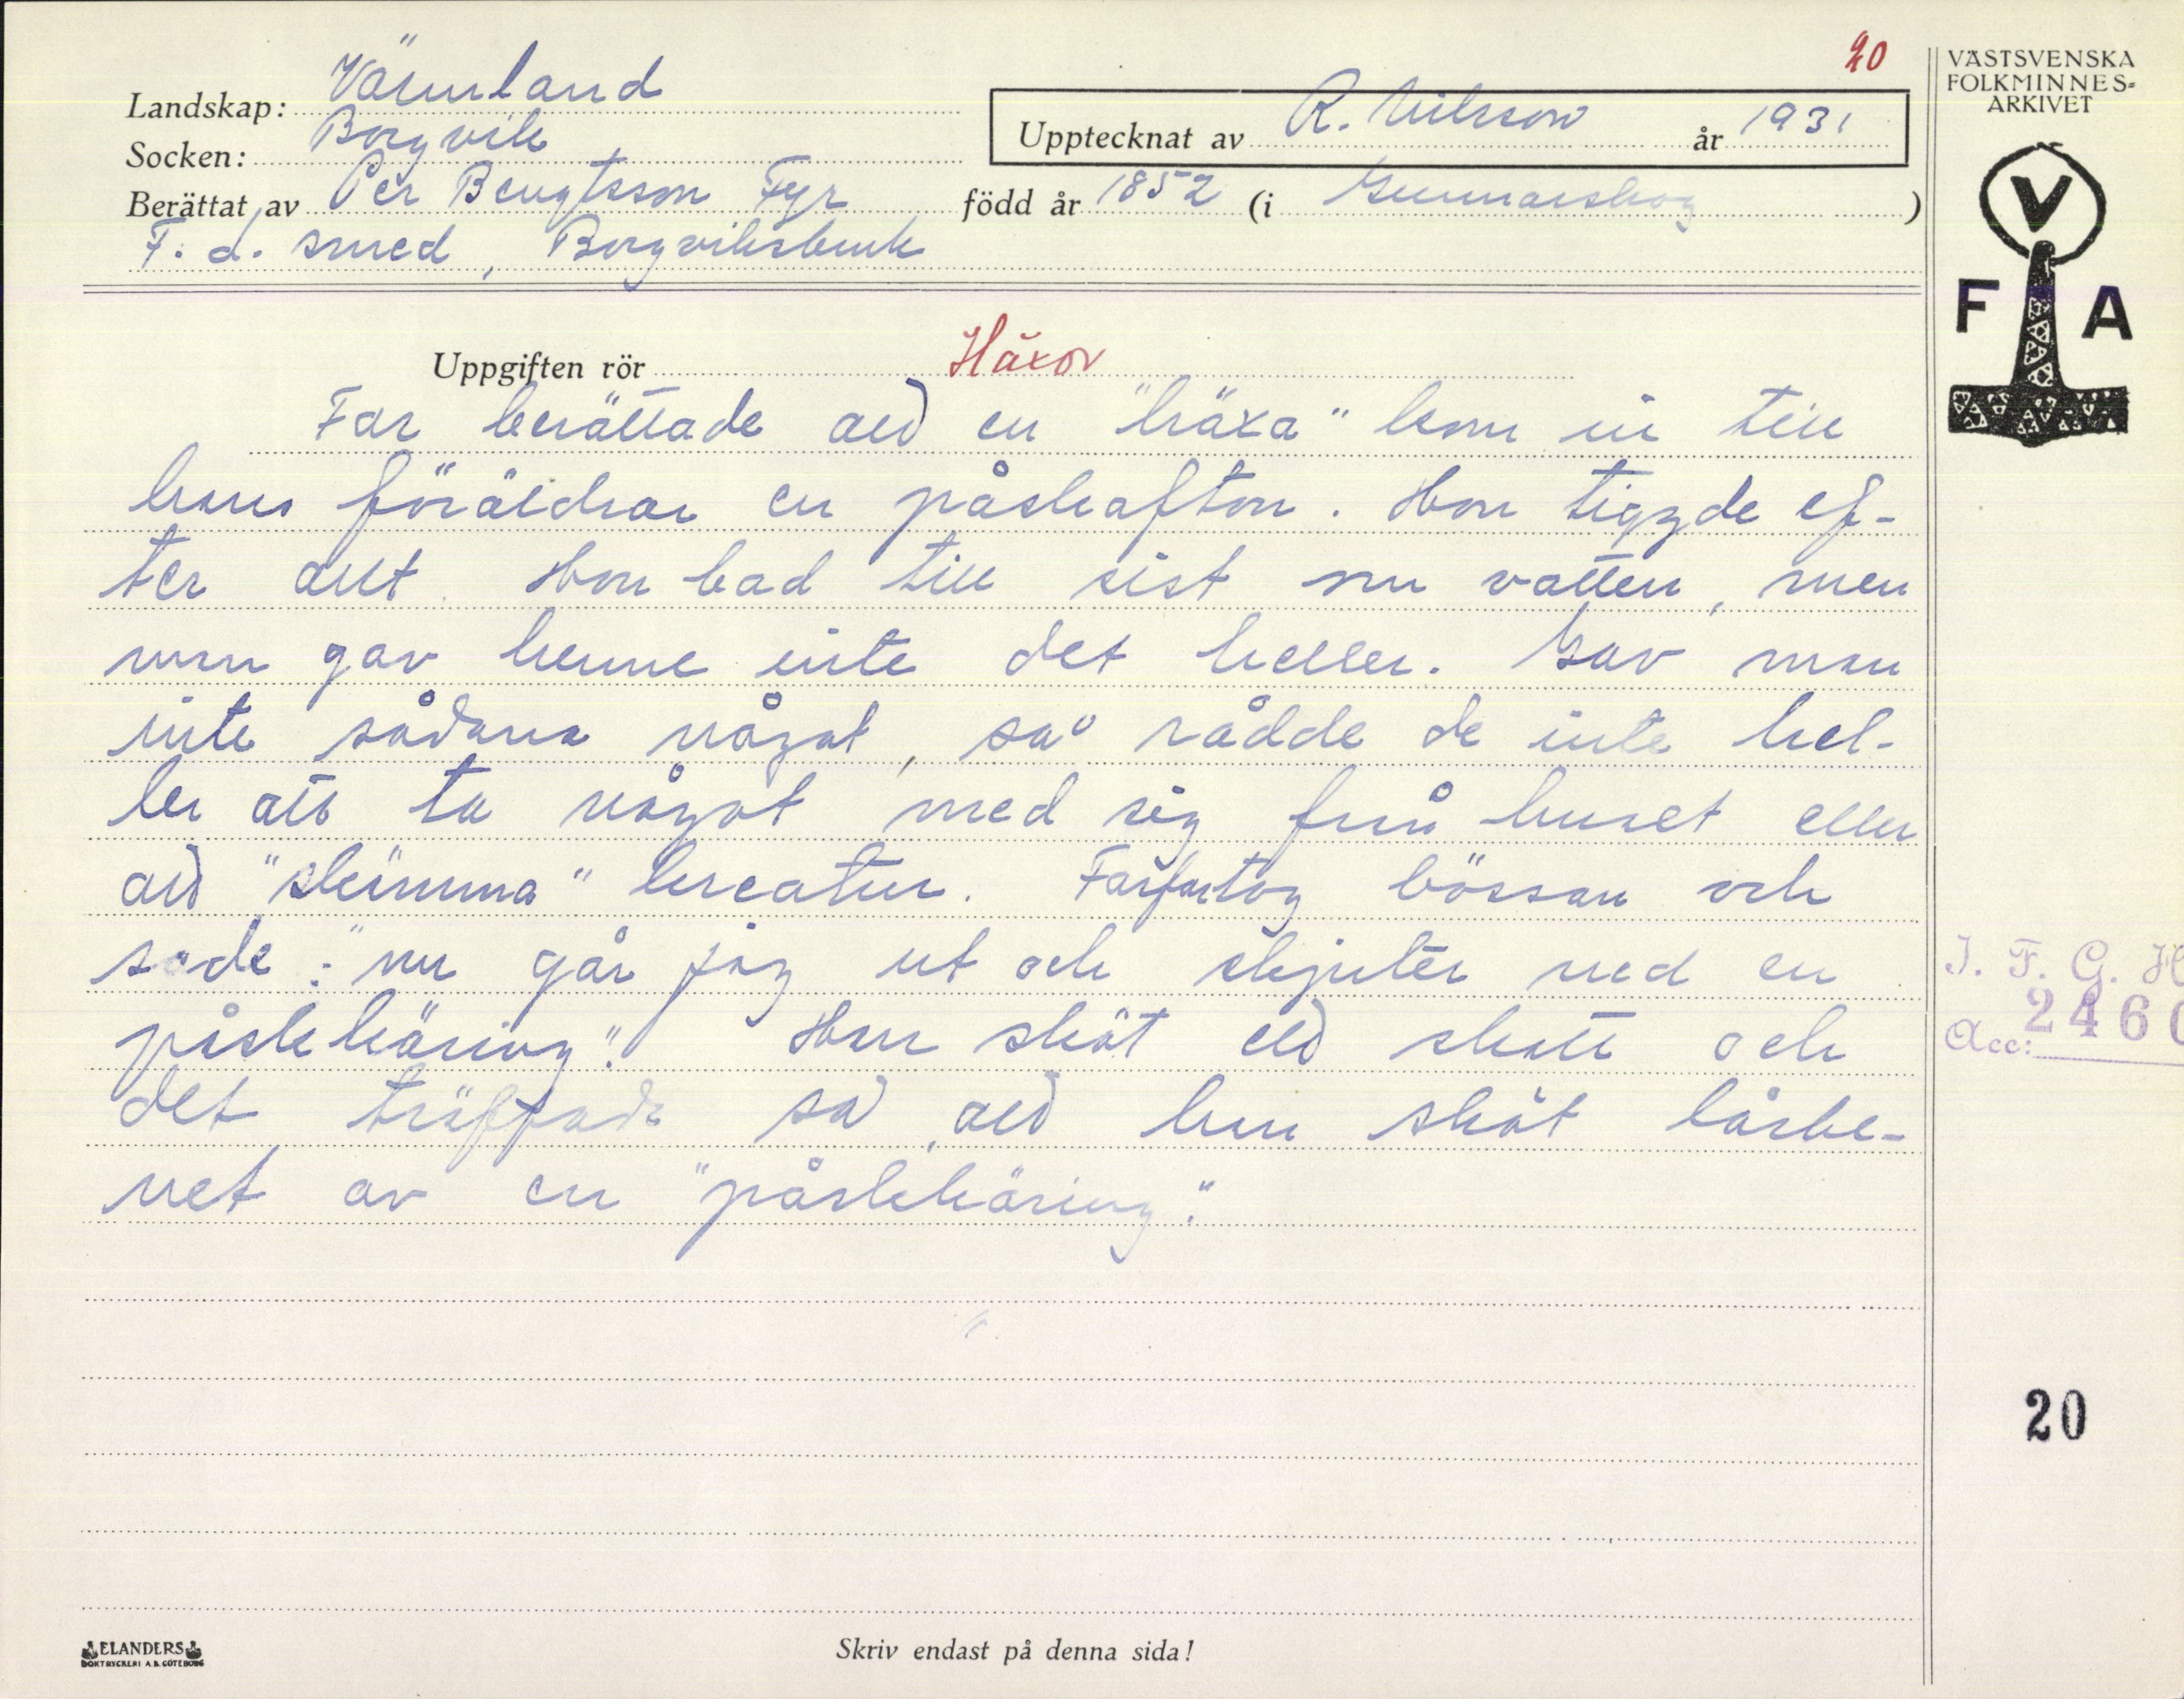 20
Landskap: Värmland
Socken: Borgvik
Upptecknat av R. Nilsson år 1931
Berättat av Per Bengtsson Fyr född år 1852 (i Gunnarskog)
F. d. smed, Borgviksbruk
VÄSTSVENSKA
FOLKMINNES-
ARKIVET
V
F A
Uppgiften rör Häxor
Far berättade att en "häxa" kom in till
hans föräldrar en påskafton. Hon tiggde ef-
ter allt. Hon bad till sist om vatten, men
man gav henne inte det heller. Gav man
inte sådana något, så rådde de inte hel-
ler att ta något med sig från huset eller
att "skämma" kreatur. Farfar tog bössan och
sade: "nu går jag ut och skjuter ned en
påskkäring". Han sköt ett skott och
det träffade så, att han sköt lårbe-
net av en "påskkäring".
I. F. G. H
Acc: 2460
20
ELANDERS
BOKTRYCKERI A.B. GÖTEBORG
Skriv endast på denna sida!